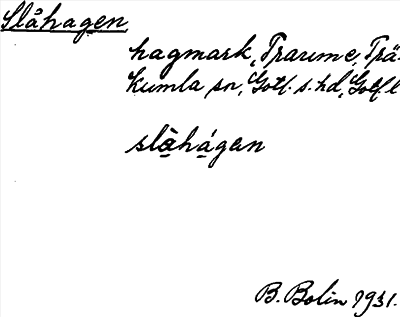 Slåhagen
hagmark, Traume, Trä-
kumla sn, Gotl. s. hd, Gotl. l
slàhágen
B. Bolin 1931.